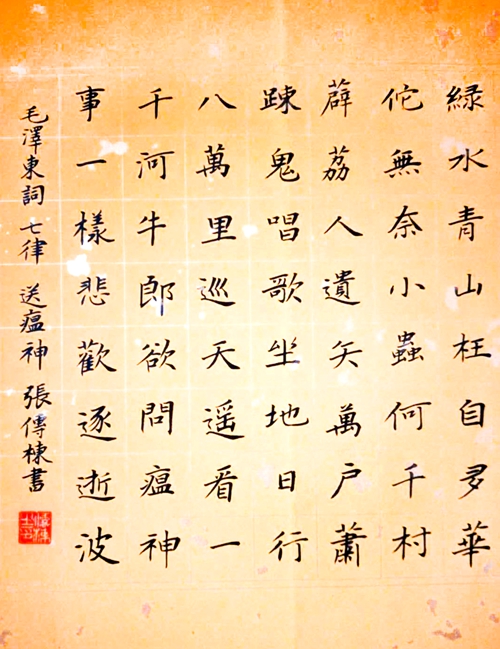 緑水青山枉自多華
佗無奈小蟲何千村
薜荔人遺矢萬户蕭
踈鬼唱歌坐地日行
八萬里巡天遥看一
千河牛郎欲問瘟神
事一樣悲歡逐逝波
毛澤東詞 七律 送瘟神 張傳棟書